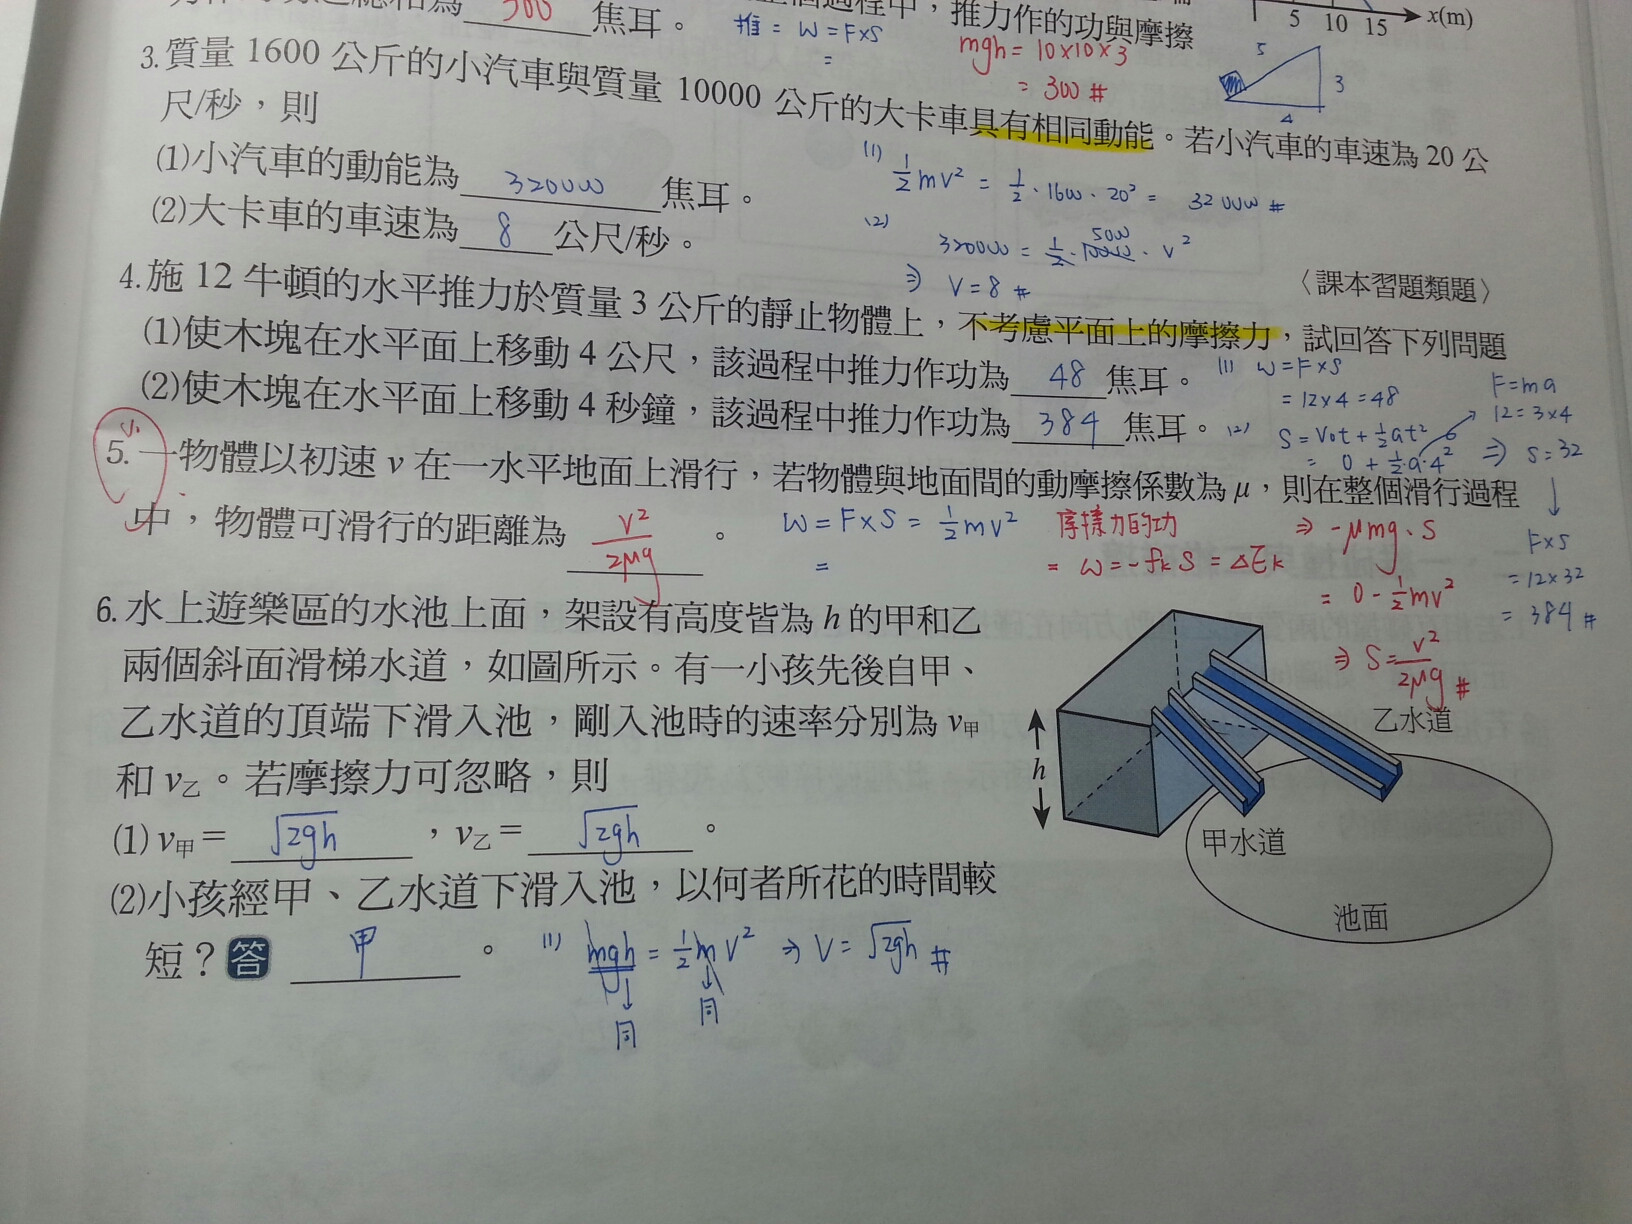 300 焦耳。
推 = W = F×S
=
推力作的功與摩擦
mgh = 10×10×3
= 300 #
5 10 15 x(m)
5
3
4
3. 質量 1600 公斤的小汽車與質量 10000 公斤的大卡車具有相同動能。若小汽車的車速為 20 公
尺/秒，則
(1)小汽車的動能為 320000 焦耳。
(1) ½mv² = ½·1600·20² = 320000 #
(2)大卡車的車速為 8 公尺/秒。
(2) 320000 = ½·10000·v²
5000
⇒ V = 8 #
〈課本習題類題〉
4. 施 12 牛頓的水平推力於質量 3 公斤的靜止物體上，不考慮平面上的摩擦力，試回答下列問題
(1)使木塊在水平面上移動 4 公尺，該過程中推力作功為 48 焦耳。
(1) W = F×S
= 12×4 = 48
(2)使木塊在水平面上移動 4 秒鐘，該過程中推力作功為 384 焦耳。
(2) S = V₀t + ½at²
= 0 + ½·a·4²
F = ma
12 = 3×4
⇒ S = 32
↓
F×S
= 12×32
= 384 #
5. 一物體以初速 v 在一水平地面上滑行，若物體與地面間的動摩擦係數為 μ，則在整個滑行過程
中，物體可滑行的距離為 v²/2μg 。
W = F×S = ½mv²
=
摩擦力的功
= W = -fk S = ΔEk
⇒ -μmg·S
= 0 - ½mv²
⇒ S = v²/2μg #
6. 水上遊樂區的水池上面，架設有高度皆為 h 的甲和乙
兩個斜面滑梯水道，如圖所示。有一小孩先後自甲、
乙水道的頂端下滑入池，剛入池時的速率分別為 v甲
和 v乙。若摩擦力可忽略，則
(1) v甲 = √2gh ，v乙 = √2gh 。
(2)小孩經甲、乙水道下滑入池，以何者所花的時間較
短？答 甲 。
(1) mgh = ½mv² ⇒ V = √2gh #
↓ ↓
同 同
h
乙水道
甲水道
池面